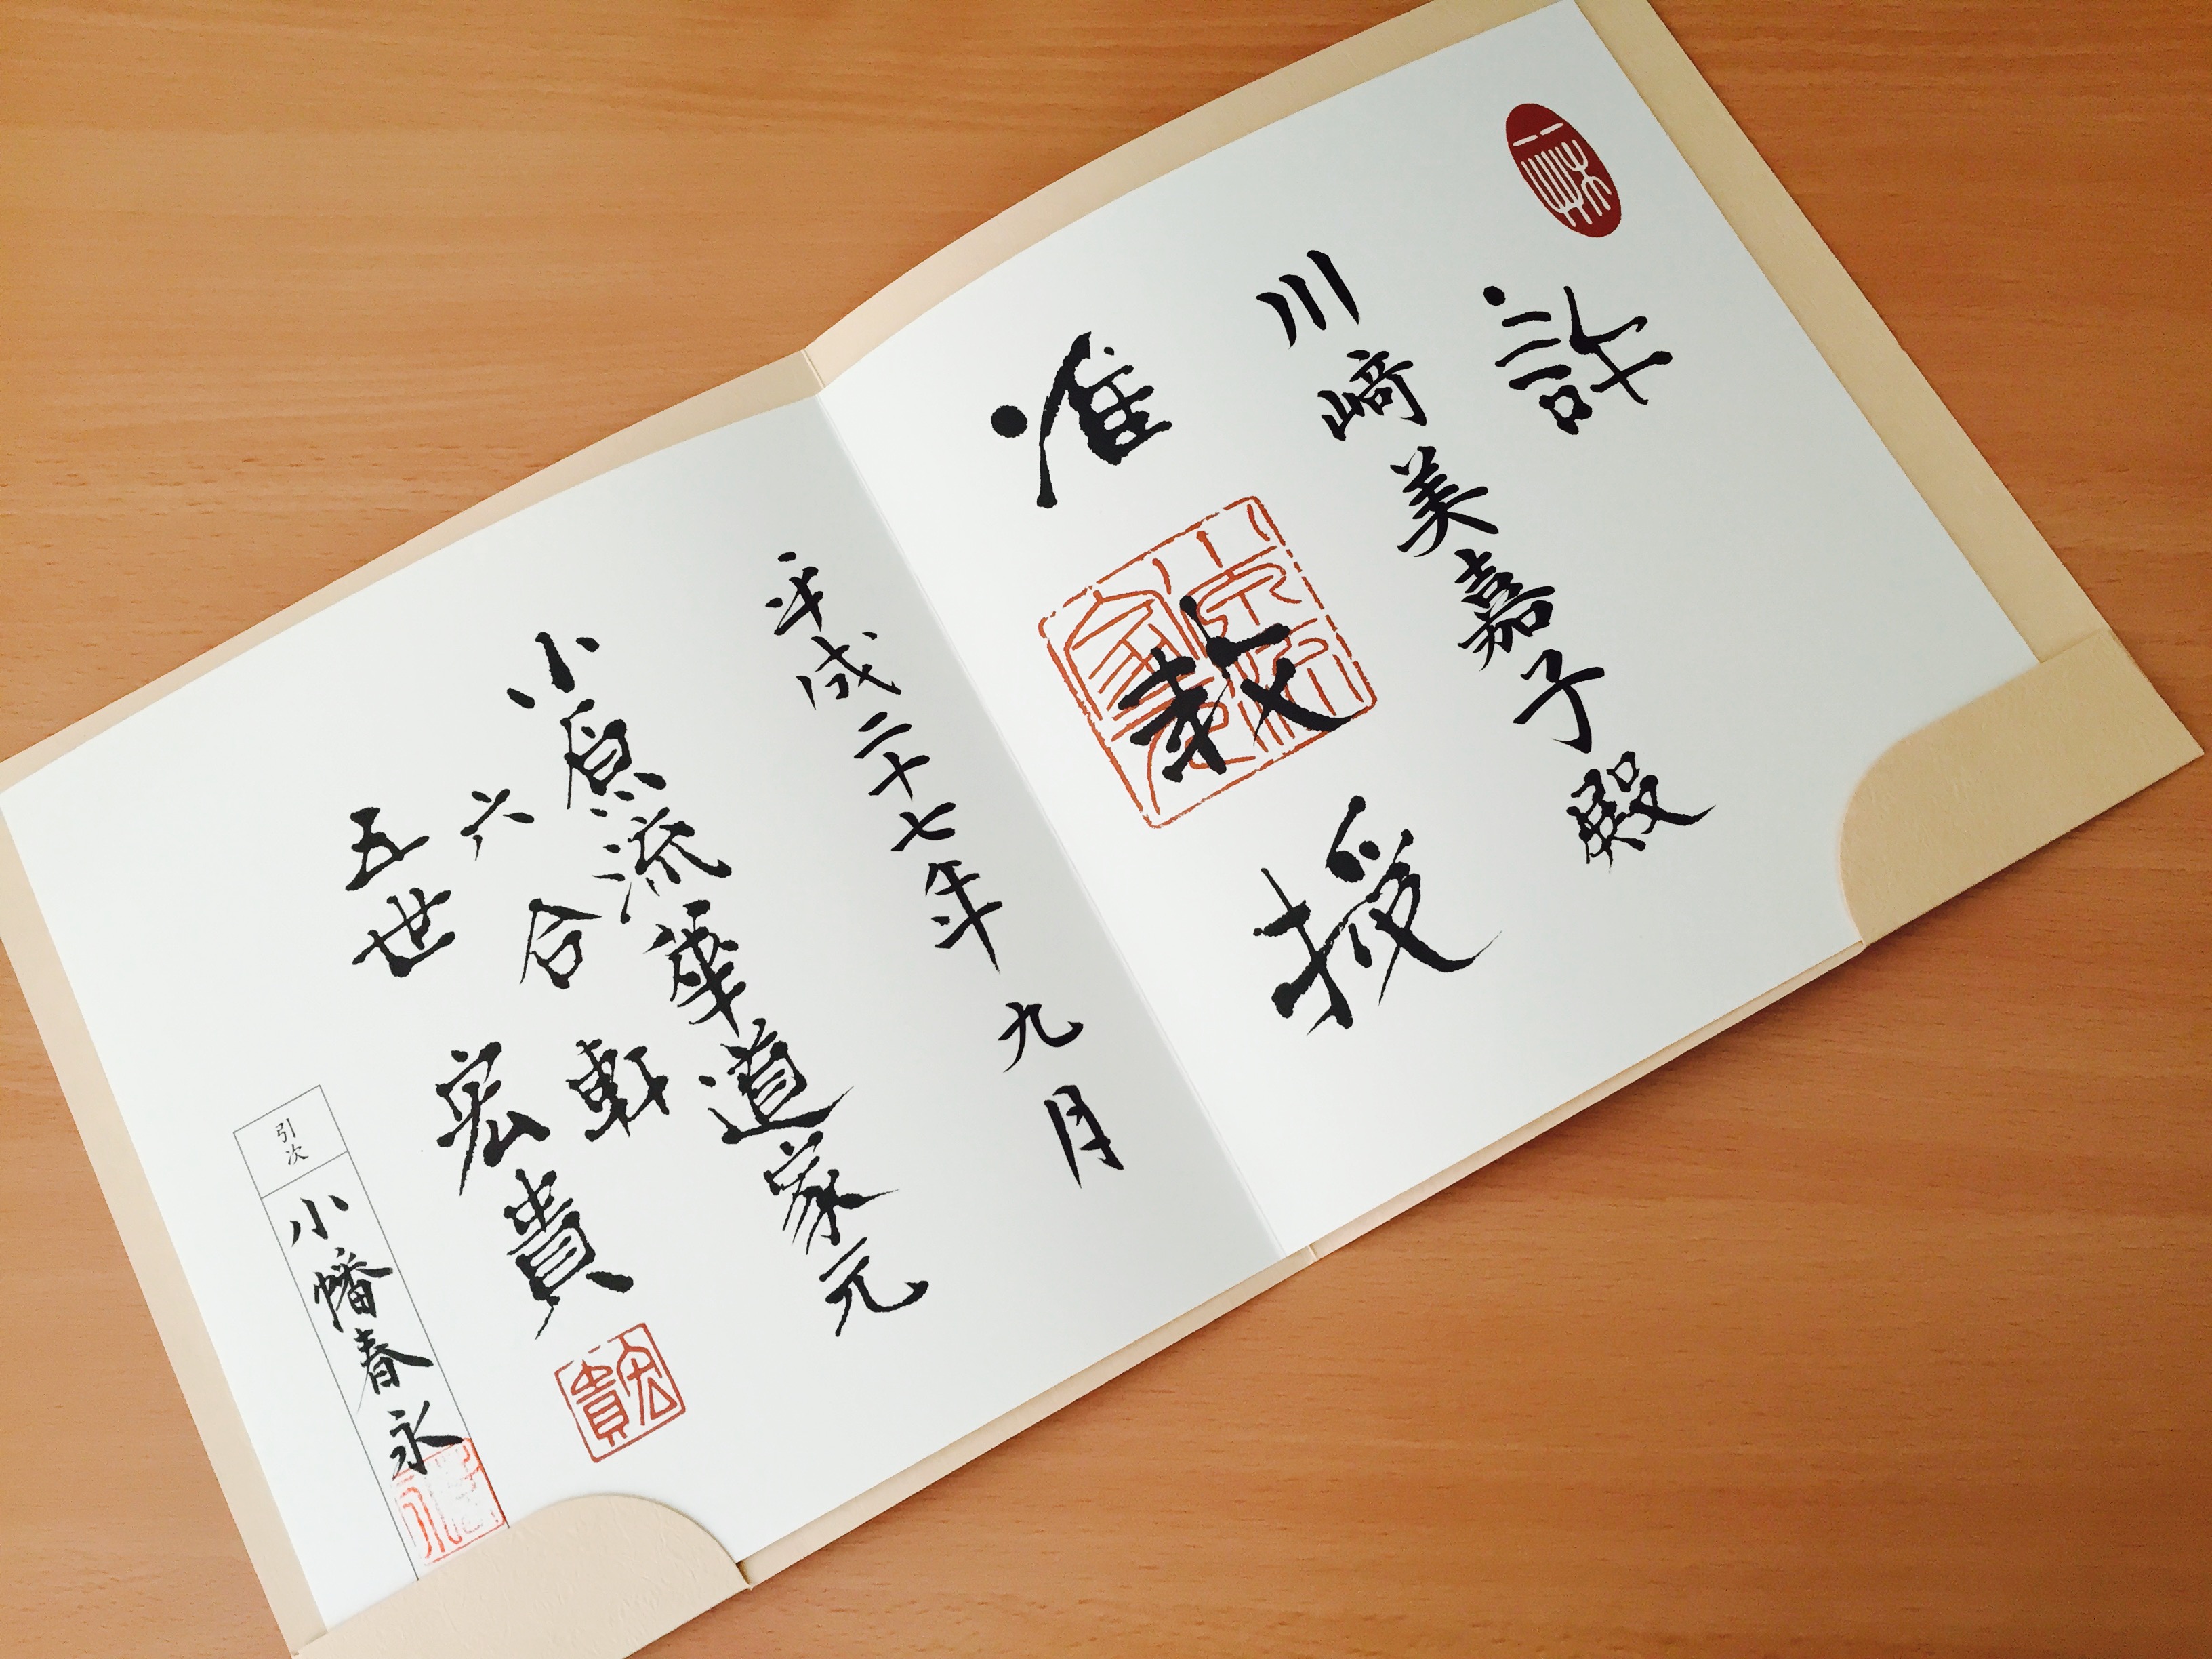 許
川﨑美嘉子殿
准教授
平成二十七年九月
小原流華道家元
六合軒
五世宏貴
宏貴
引次
小幡春永